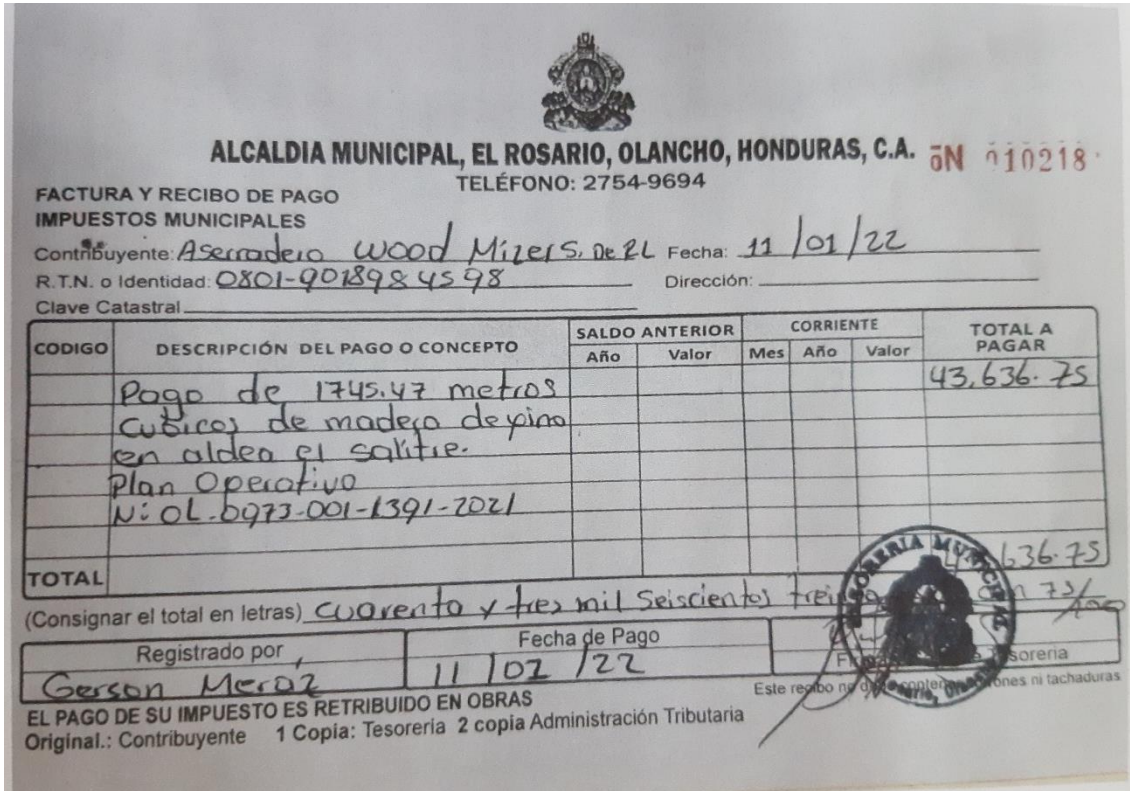 ALCALDIA MUNICIPAL, EL ROSARIO, OLANCHO, HONDURAS, C.A. ōN 010218
TELÉFONO: 2754-9694
FACTURA Y RECIBO DE PAGO
IMPUESTOS MUNICIPALES
Contribuyente: Aserradero Wood Mizer S. De RL Fecha: 11/01/22
R.T.N. o Identidad: 0801-9018984598 Dirección:
Clave Catastral
CODIGO DESCRIPCIÓN DEL PAGO O CONCEPTO SALDO ANTERIOR CORRIENTE TOTAL A PAGAR
Año Valor Mes Año Valor
Pago de 1745.47 metros 43,636.75
cubicos de madera de pino
en aldea el salitre.
Plan Operativo
N: OL-0973-001-1391-2021
636.75
TOTAL
(Consignar el total en letras) cuarenta y tres mil Seiscientos 75/100
Registrado por Fecha de Pago
Gerson Meraz 11/01/22
TESORERIA MUNICIPAL
Este recibo no ni tachaduras
EL PAGO DE SU IMPUESTO ES RETRIBUIDO EN OBRAS
Original.: Contribuyente 1 Copia: Tesoreria 2 copia Administración Tributaria